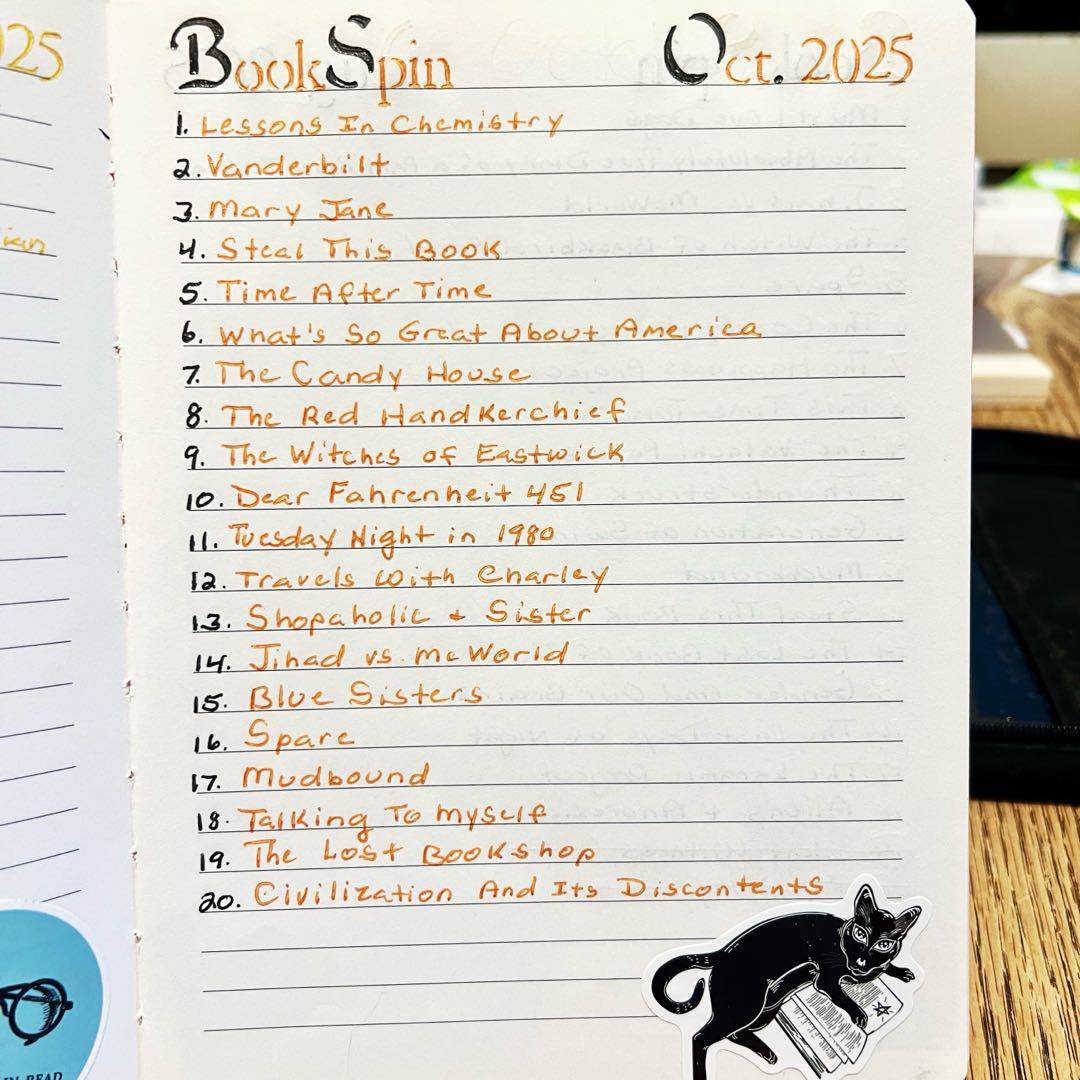 025
BookSpin Oct. 2025
1. Lessons In Chemistry
2. Vanderbilt
3. Mary Jane
4. Steal This Book
5. Time After Time
6. What's So Great About America
7. The Candy House
8. The Red Handkerchief
9. The Witches of Eastwick
10. Dear Fahrenheit 451
11. Tuesday Night in 1980
12. Travels With Charley
13. Shopaholic + Sister
14. Jihad vs. McWorld
15. Blue Sisters
16. Spare
17. Mudbound
18. Talking To Myself
19. The Lost Bookshop
20. Civilization And Its Discontents